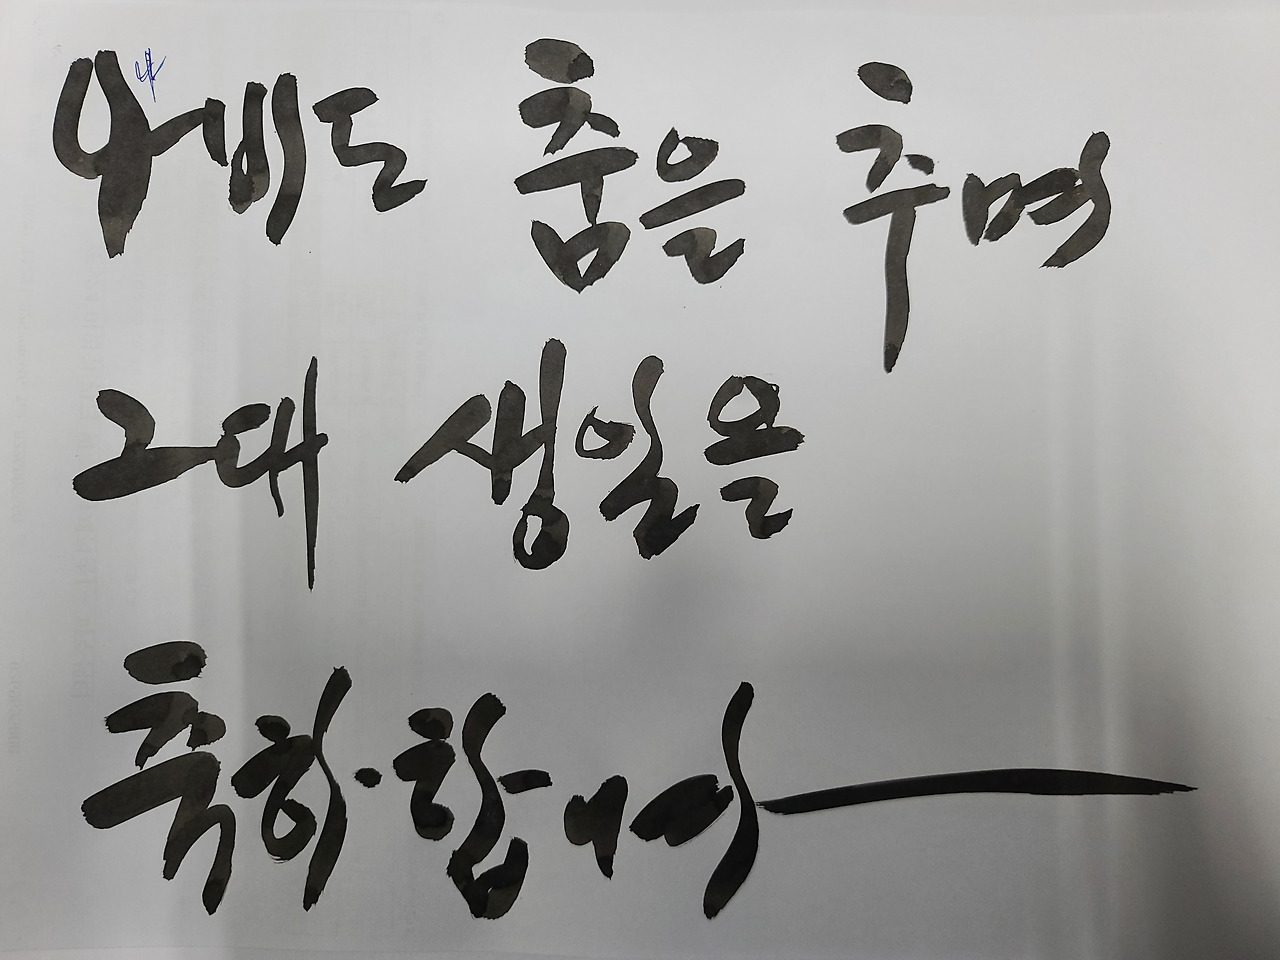 나비도 춤을 추며
그대 생일을
축하합니다